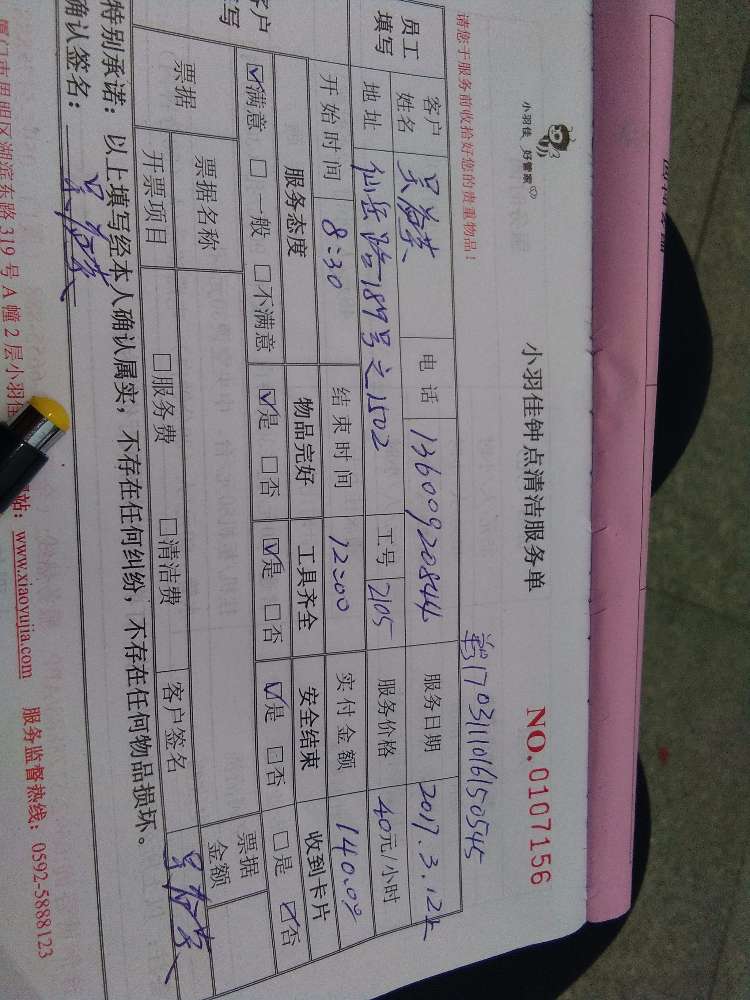 小羽佳 好管家
小羽佳钟点清洁服务单
NO.0107156
1703111016150545
请您于服务前收拾好您的贵重物品!
员工填写
客户姓名 电话 13600920844 服务日期 2017.3.12
地址 仙岳路189号之1502 工号 2105 服务价格 40元/小时
开始时间 8:30 结束时间 12:00 实付金额 140.0
客户
填写
服务态度 物品完好 工具齐全 安全结束 收到卡片
☑满意 □一般 □不满意 ☑是 □否 ☑是 □否 ☑是 □否 □是 ☑否
票据 票据名称 票据金额
开票项目 □服务费 □清洁费 客户签名
特别承诺:以上填写经本人确认属实,不存在任何纠纷,不存在任何物品损坏。
确认签名:
厦门市思明区湖滨东路319号A幢2层小羽佳
站:www.xiaoyujia.com 服务监督热线:0592-5888123